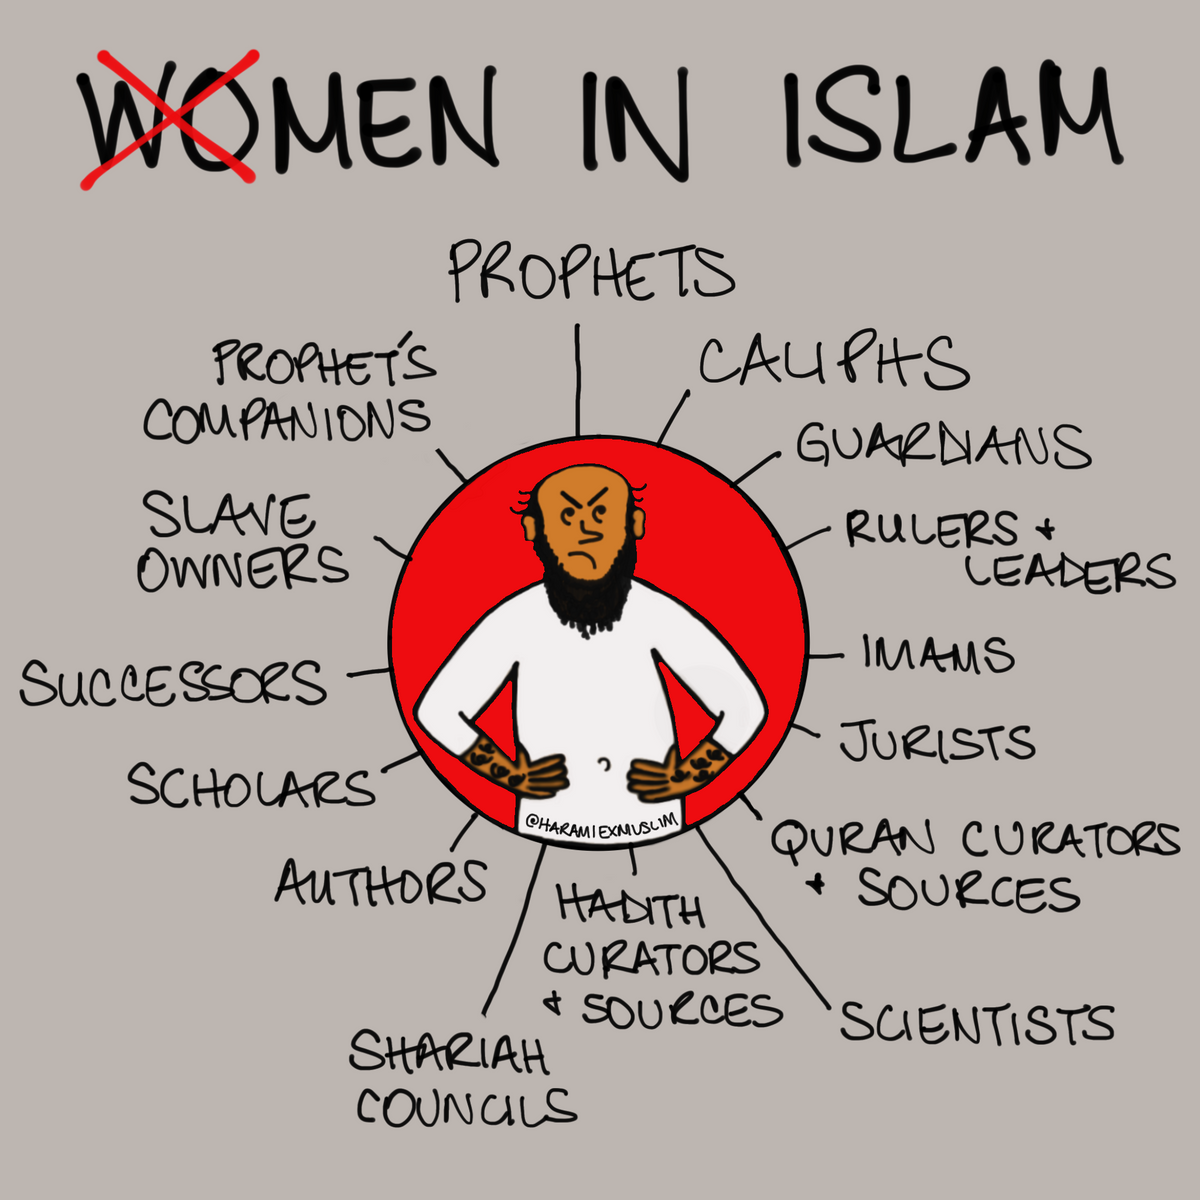 WOMEN IN ISLAM
PROPHETS
CALIPHS
GUARDIANS
RULERS +
LEADERS
IMAMS
JURISTS
QURAN CURATORS
+ SOURCES
SCIENTISTS
HADITH
CURATORS
+ SOURCES
SHARIAH
COUNCILS
AUTHORS
SCHOLARS
SUCCESSORS
SLAVE
OWNERS
PROPHET'S
COMPANIONS
@HARAMIEXMUSLIM